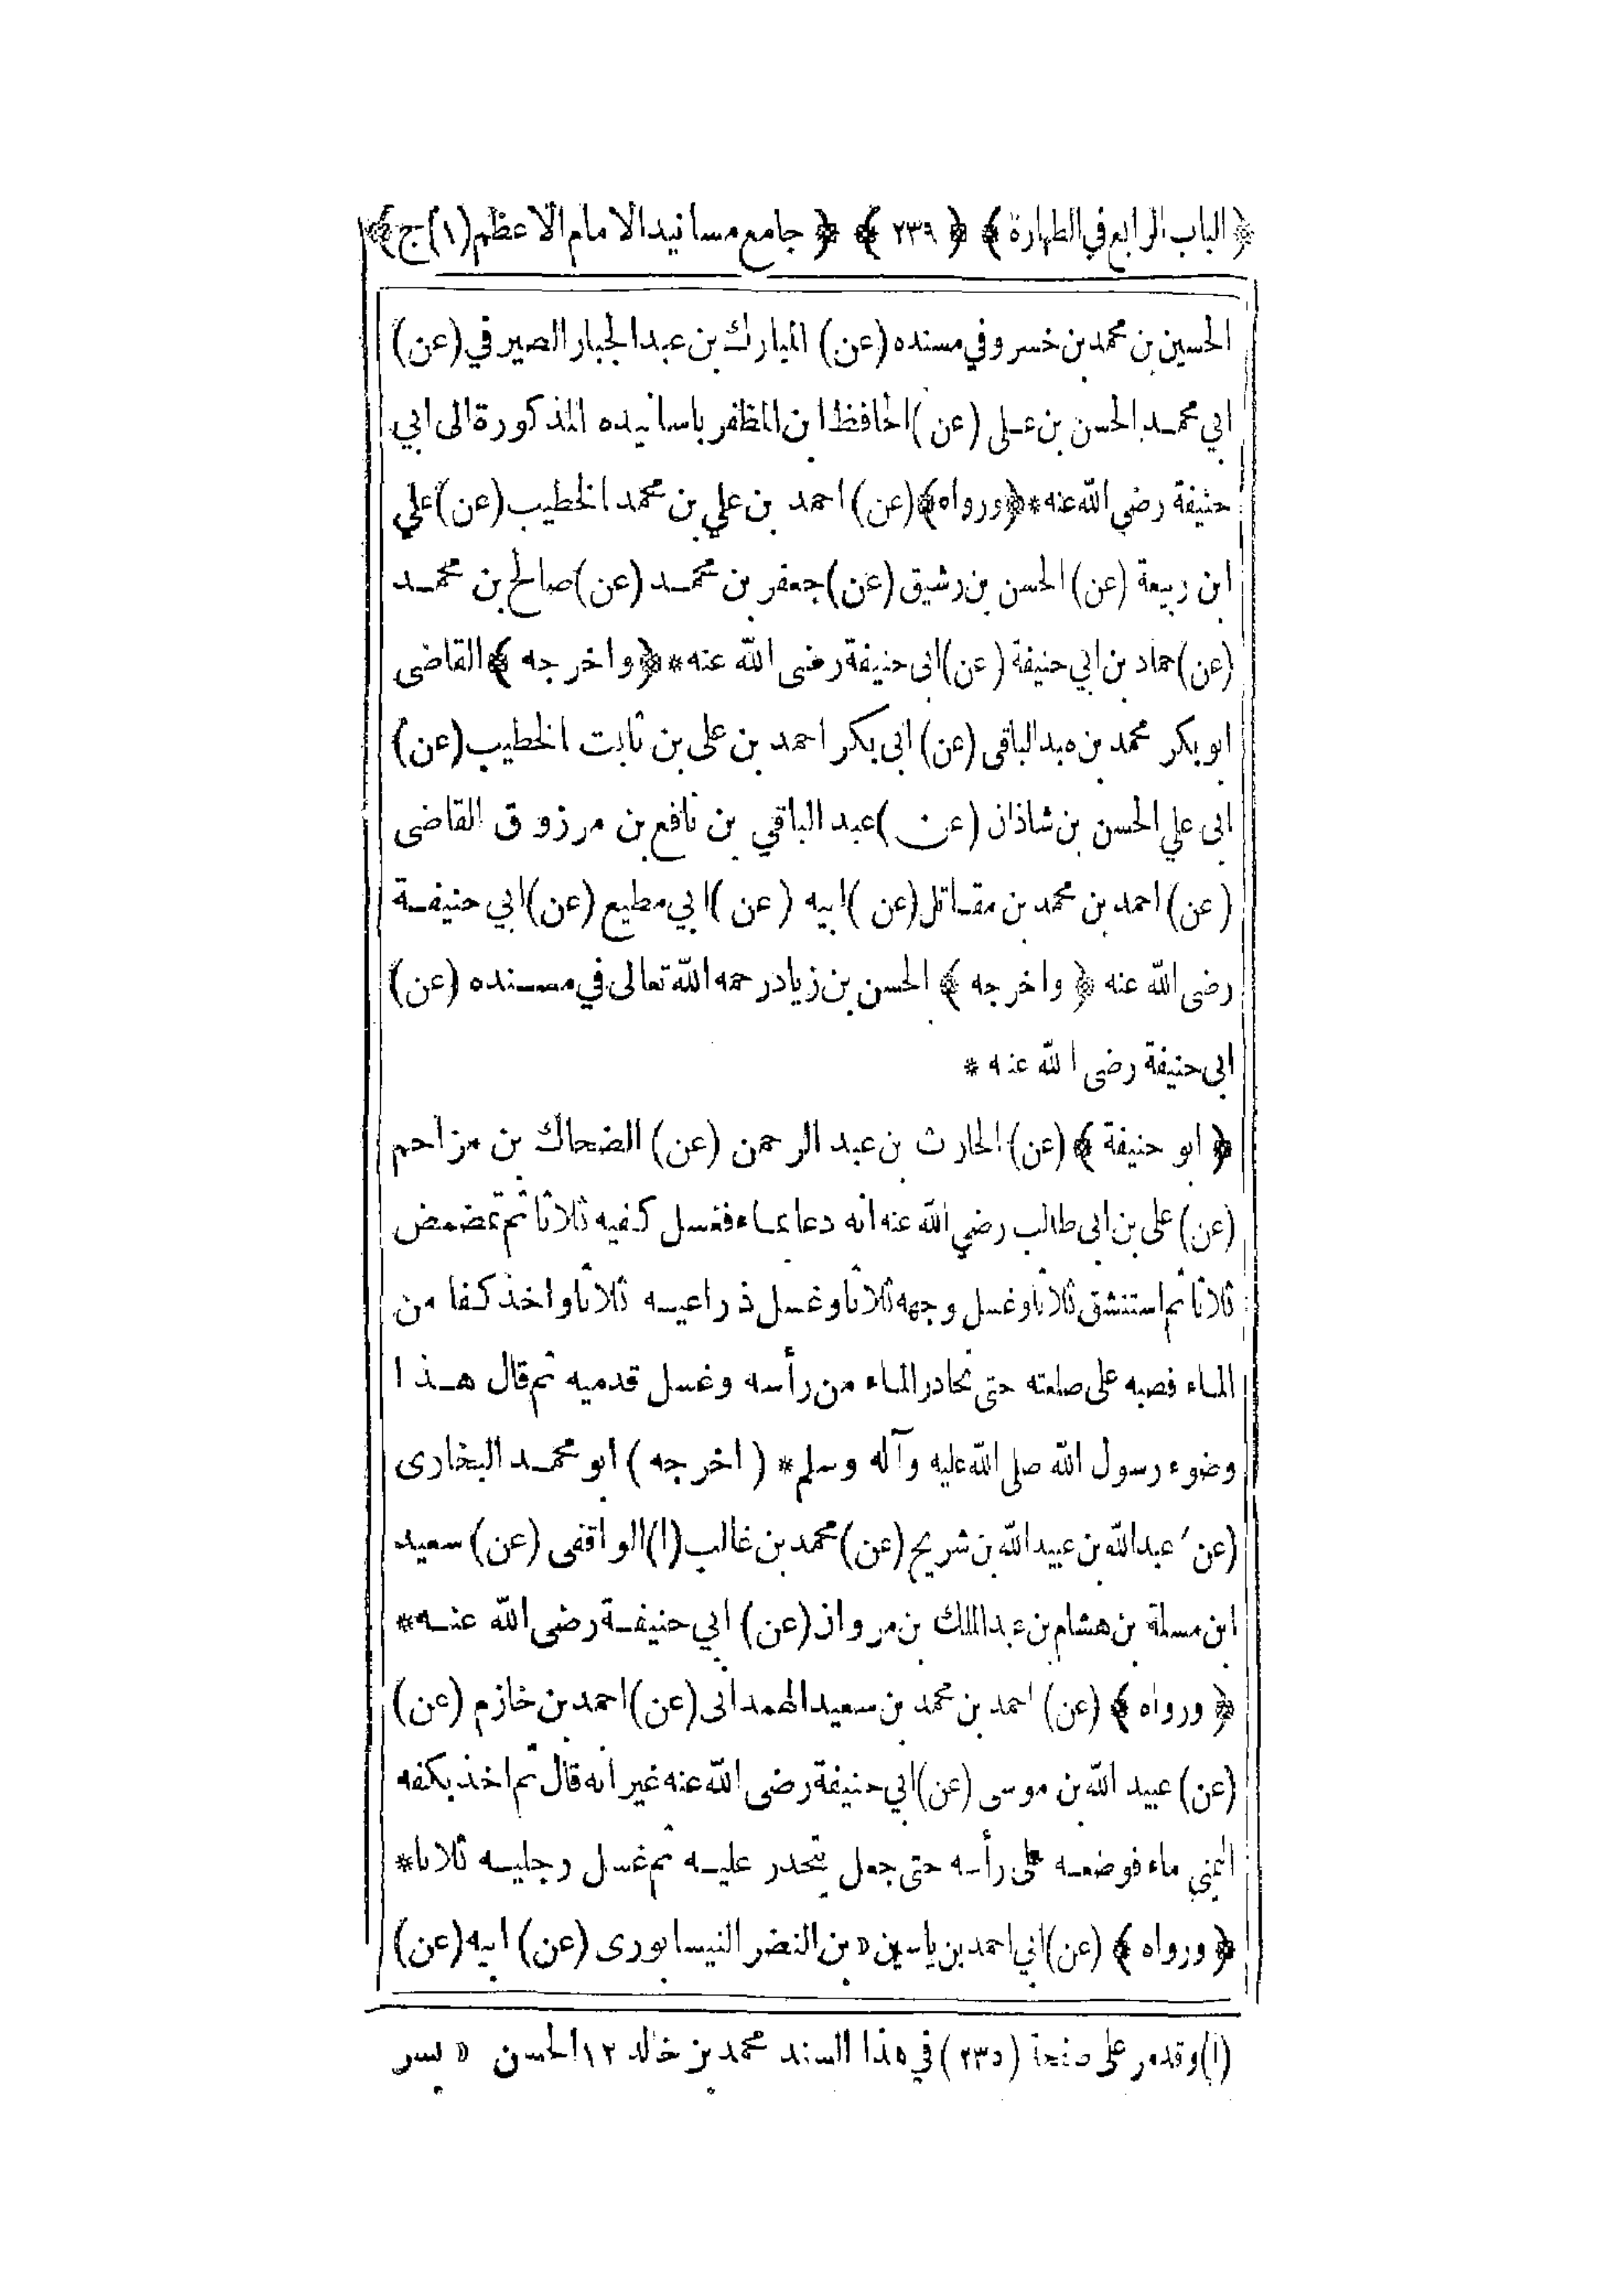 ﴿ الباب الرابع في الطهارة ﴾ ﴿ ٢٣٩ ﴾ ﴿ جامع مسانيد الامام الاعظم (١) ج ﴾
الحسين بن محمد بن خسرو في مسنده (عن) المبارك بن عبد الجبار الصيرفي (عن)
ابي محمد الحسن بن علي (عن) الحافظ ابن المظفر باسانيده المذكورة الى ابي
حنيفة رضي الله عنه * ﴿ ورواه ﴾ (عن) احمد بن علي بن محمد الخطيب (عن) علي
ابن ربيعة (عن) الحسن بن رشيق (عن) جعفر بن محمد (عن) صالح بن محمد
(عن) حماد بن ابي حنيفة (عن) ابى حنيفة رضى الله عنه * ﴿ واخرجه ﴾ القاضى
ابو بكر محمد بن عبد الباقى (عن) ابى بكر احمد بن على بن ثابت الخطيب (عن)
ابى علي الحسن بن شاذان (عن) عبد الباقي بن نافع بن مرزوق القاضى
(عن) احمد بن محمد بن مقاتل (عن) ابيه (عن) ابي مطيع (عن) ابي حنيفة
رضى الله عنه ﴿ واخرجه ﴾ الحسن بن زياد رحمه الله تعالى في مسنده (عن)
ابى حنيفة رضى الله عنه *
﴿ ابو حنيفة ﴾ (عن) الحارث بن عبد الرحمن (عن) الضحاك بن مزاحم
(عن) على بن ابى طالب رضي الله عنه انه دعا بماء فغسل كفيه ثلاثا ثم تمضمض
ثلاثا ثم استنشق ثلاثا وغسل وجهه ثلاثا وغسل ذراعيه ثلاثا واخذ كفا من
الماء فصبه على صلعته حتى تحادر الماء من رأسه وغسل قدميه ثم قال هذا
وضوء رسول الله صلى الله عليه وآله وسلم * (اخرجه) ابو محمد البخارى
(عن) عبد الله بن عبيد الله بن شريح (عن) محمد بن غالب (١) الواقفى (عن) سعيد
ابن مسلمة بن هشام بن عبد الملك بن مروان (عن) ابي حنيفة رضى الله عنه *
﴿ ورواه ﴾ (عن) احمد بن محمد بن سعيد الهمدانى (عن) احمد بن خازم (عن)
(عن) عبيد الله بن موسى (عن) ابي حنيفة رضى الله عنه غير انه قال ثم اخذ بكفه
اليمنى ماء فوضعه على رأسه حتى جعل يتحدر عليه ثم غسل رجليه ثلاثا *
﴿ ورواه ﴾ (عن) ابي احمد بن ياسين ٥ بن النضر النيسابورى (عن) ابيه (عن)
(١) وقد مر على صفحة (٢٣٥) في هذا السند محمد بن خالد ١٢ الحسن ٥ يسر